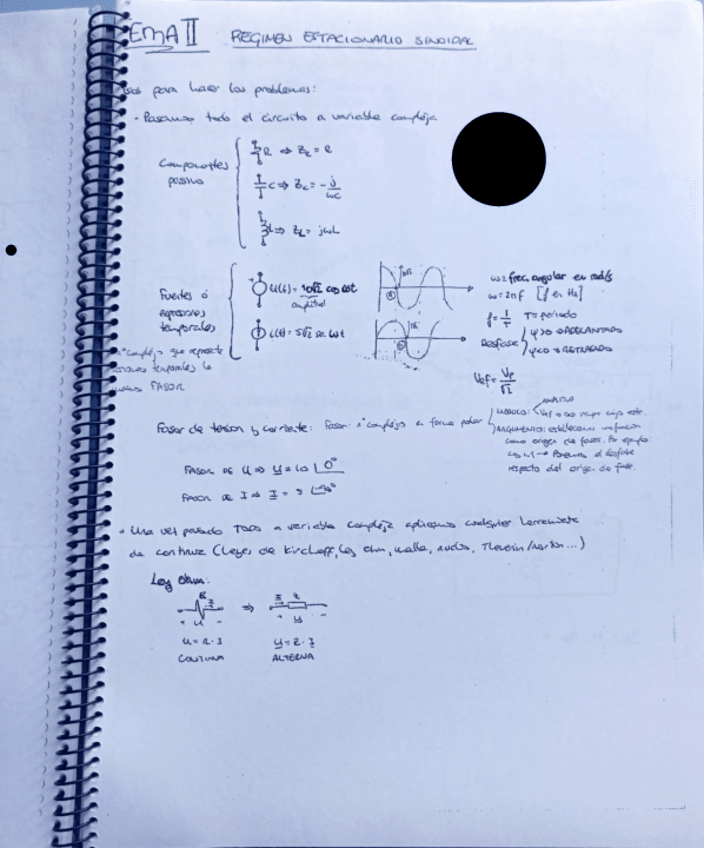 EMA II REGIMEN ESTACIONARIO SINOIDAL
para hacer los problemas:
- Pasamos todo el circuito a variable compleja
Componentes
pasivo
R ⇒ Z_R = R
C ⇒ Z_C = -j/ωC
L ⇒ Z_L = jωL
Fuentes ó
expresiones
temporales
u(t) = 10√2 cos ωt
amplitud
i(t) = 5√2 sen ωt
ω = frec. angular en rad/s
ω = 2πf [f en Hz]
f = 1/T T = periodo
Desfase φ>0 → ADELANTADO
φ<0 → RETRASADO
Uef = Up/√2
nº complejo que representa
temporales lo
FASOR
Fasor de tension y corriente: Fasor: nº complejo en forma polar
MODULO:
ARGUMENTO: establecemos
como origen de fases. Por ejemplo
cos ωt → Ponemos el desfase
respecto del origen de fase.
FASOR DE U ⇒ U = 10 ∠0°
FASOR DE I ⇒ I = 5 ∠-90°
• Una vez pasado TODO a variable compleja aplicamos cualquier herramienta
de continua (Leyes de Kirchoff, Ley ohm, malla, nudos, Thevenin/Norton...)
Ley Ohm:
R I ⇒ I Z
+ U - + U -
U = R · I U = Z · I
CONTINUA ALTERNA